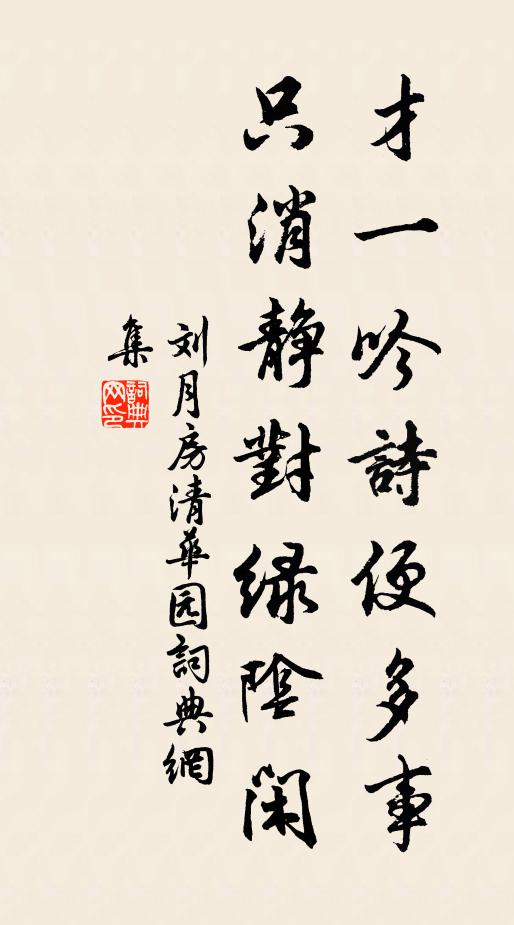 才一吟詩便多事
只消靜對绿陰闲
刘月房清華园詞典網
集
詞典
网印